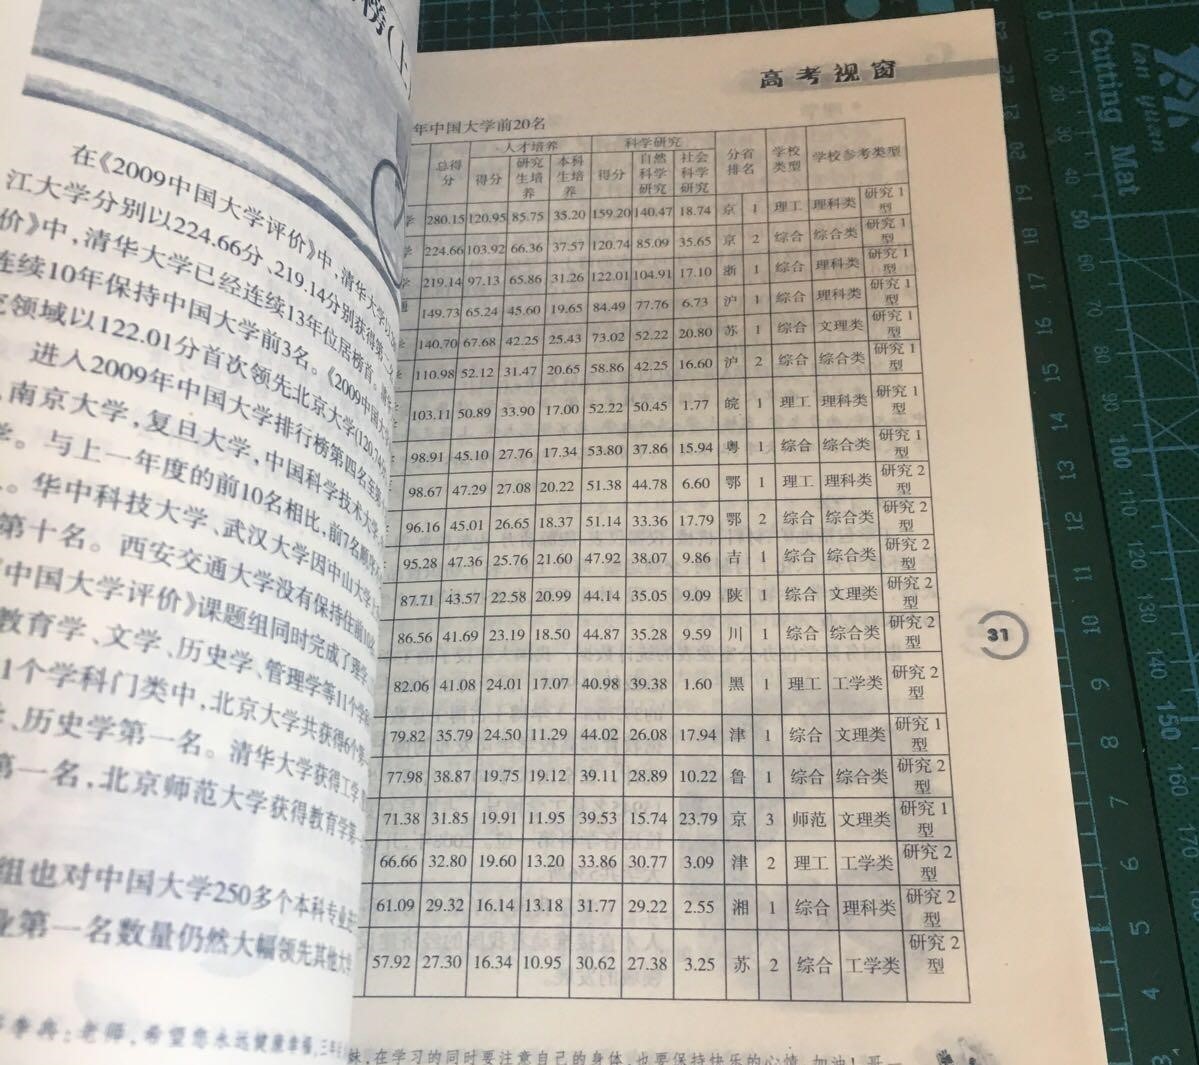 榜(上
在《2009中国大学评价》中,清华大学以
江大学分别以224.66分、219.14分别获得第
价》中,清华大学已经连续13年位居榜首。
连续10年保持中国大学前3名。《2009中国大
究领域以122.01分首次领先北京大学(120.74分
进入2009年中国大学排行榜第四名至第
南京大学,复旦大学,中国科学技术大学,
学。与上一年度的前10名相比,前7名顺序
。华中科技大学、武汉大学因中山大学
第十名。西安交通大学没有保持住前10
中国大学评价》课题组同时完成了理学
教育学、文学、历史学、管理学等11个学
1个学科门类中,北京大学共获得6个第
、历史学第一名。清华大学获得工学
第一名,北京师范大学获得教育学第
组也对中国大学250多个本科专业
业第一名数量仍然大幅领先其他大
李兵:老师,希望您永远健康幸福,三年
高考视窗
年中国大学前20名
总得分 人才培养 科学研究 分省排名 学校类型 学校参考类型
得分 研究生培养 本科生培养 得分 自然科学研究 社会科学研究
学 280.15 120.95 85.75 35.20 159.20 140.47 18.74 京 1 理工 理科类 研究1型
学 224.66 103.92 66.36 37.57 120.74 85.09 35.65 京 2 综合 综合类 研究1型
学 219.14 97.13 65.86 31.26 122.01 104.91 17.10 浙 1 综合 理科类 研究1型
149.73 65.24 45.60 19.65 84.49 77.76 6.73 沪 1 综合 理科类 研究1型
140.70 67.68 42.25 25.43 73.02 52.22 20.80 苏 1 综合 文理类 研究1型
110.98 52.12 31.47 20.65 58.86 42.25 16.60 沪 2 综合 综合类 研究1型
103.11 50.89 33.90 17.00 52.22 50.45 1.77 皖 1 理工 理科类 研究1型
98.91 45.10 27.76 17.34 53.80 37.86 15.94 粤 1 综合 综合类 研究1型
98.67 47.29 27.08 20.22 51.38 44.78 6.60 鄂 1 理工 理科类 研究2型
96.16 45.01 26.65 18.37 51.14 33.36 17.79 鄂 2 综合 综合类 研究2型
95.28 47.36 25.76 21.60 47.92 38.07 9.86 吉 1 综合 综合类 研究2型
87.71 43.57 22.58 20.99 44.14 35.05 9.09 陕 1 综合 文理类 研究2型
86.56 41.69 23.19 18.50 44.87 35.28 9.59 川 1 综合 综合类 研究2型
82.06 41.08 24.01 17.07 40.98 39.38 1.60 黑 1 理工 工学类 研究2型
79.82 35.79 24.50 11.29 44.02 26.08 17.94 津 1 综合 文理类 研究1型
77.98 38.87 19.75 19.12 39.11 28.89 10.22 鲁 1 综合 综合类 研究2型
71.38 31.85 19.91 11.95 39.53 15.74 23.79 京 3 师范 文理类 研究1型
66.66 32.80 19.60 13.20 33.86 30.77 3.09 津 2 理工 工学类 研究2型
61.09 29.32 16.14 13.18 31.77 29.22 2.55 湘 1 综合 理科类 研究2型
57.92 27.30 16.34 10.95 30.62 27.38 3.25 苏 2 综合 工学类 研究2型
31
妹,在学习的同时要注意自己的身体,也要保持快乐的心情,加油!哥一
Cutting Mat